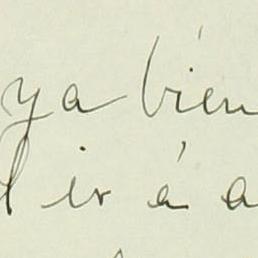 ya bien
ir á a